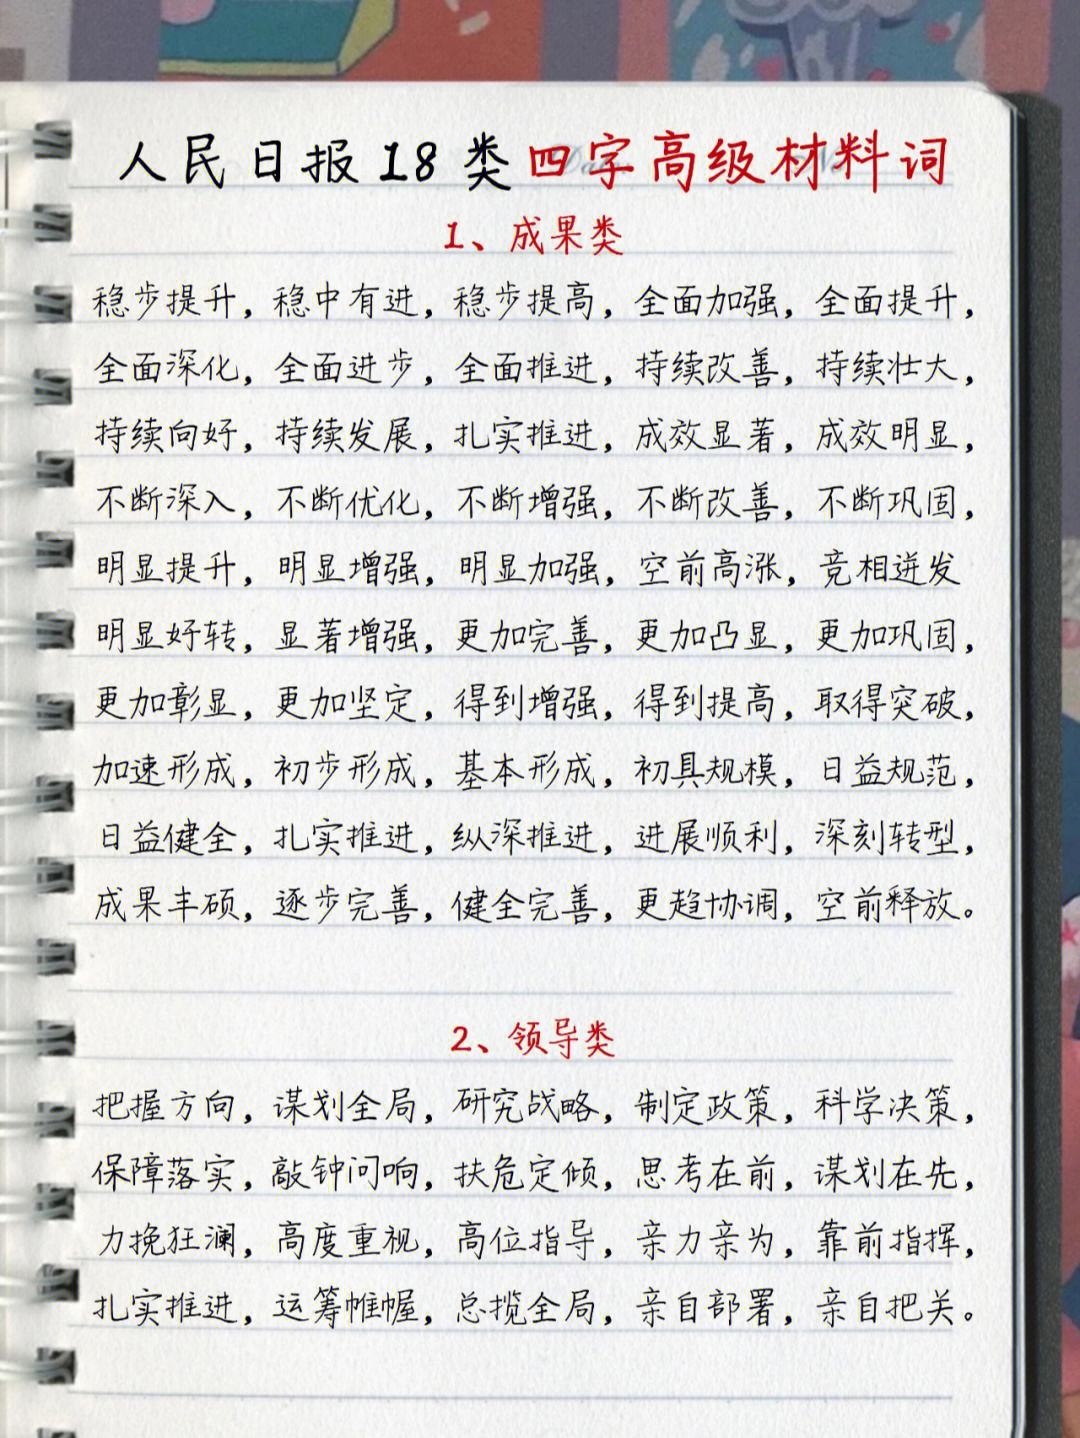 人民日报18类四字高级材料词
1、成果类
稳步提升，稳中有进，稳步提高，全面加强，全面提升，
全面深化，全面进步，全面推进，持续改善，持续壮大，
持续向好，持续发展，扎实推进，成效显著，成效明显，
不断深入，不断优化，不断增强，不断改善，不断巩固，
明显提升，明显增强，明显加强，空前高涨，竞相迸发
明显好转，显著增强，更加完善，更加凸显，更加巩固，
更加彰显，更加坚定，得到增强，得到提高，取得突破，
加速形成，初步形成，基本形成，初具规模，日益规范，
日益健全，扎实推进，纵深推进，进展顺利，深刻转型，
成果丰硕，逐步完善，健全完善，更趋协调，空前释放。
2、领导类
把握方向，谋划全局，研究战略，制定政策，科学决策，
保障落实，敲钟问响，扶危定倾，思考在前，谋划在先，
力挽狂澜，高度重视，高位指导，亲力亲为，靠前指挥，
扎实推进，运筹帷幄，总揽全局，亲自部署，亲自把关。